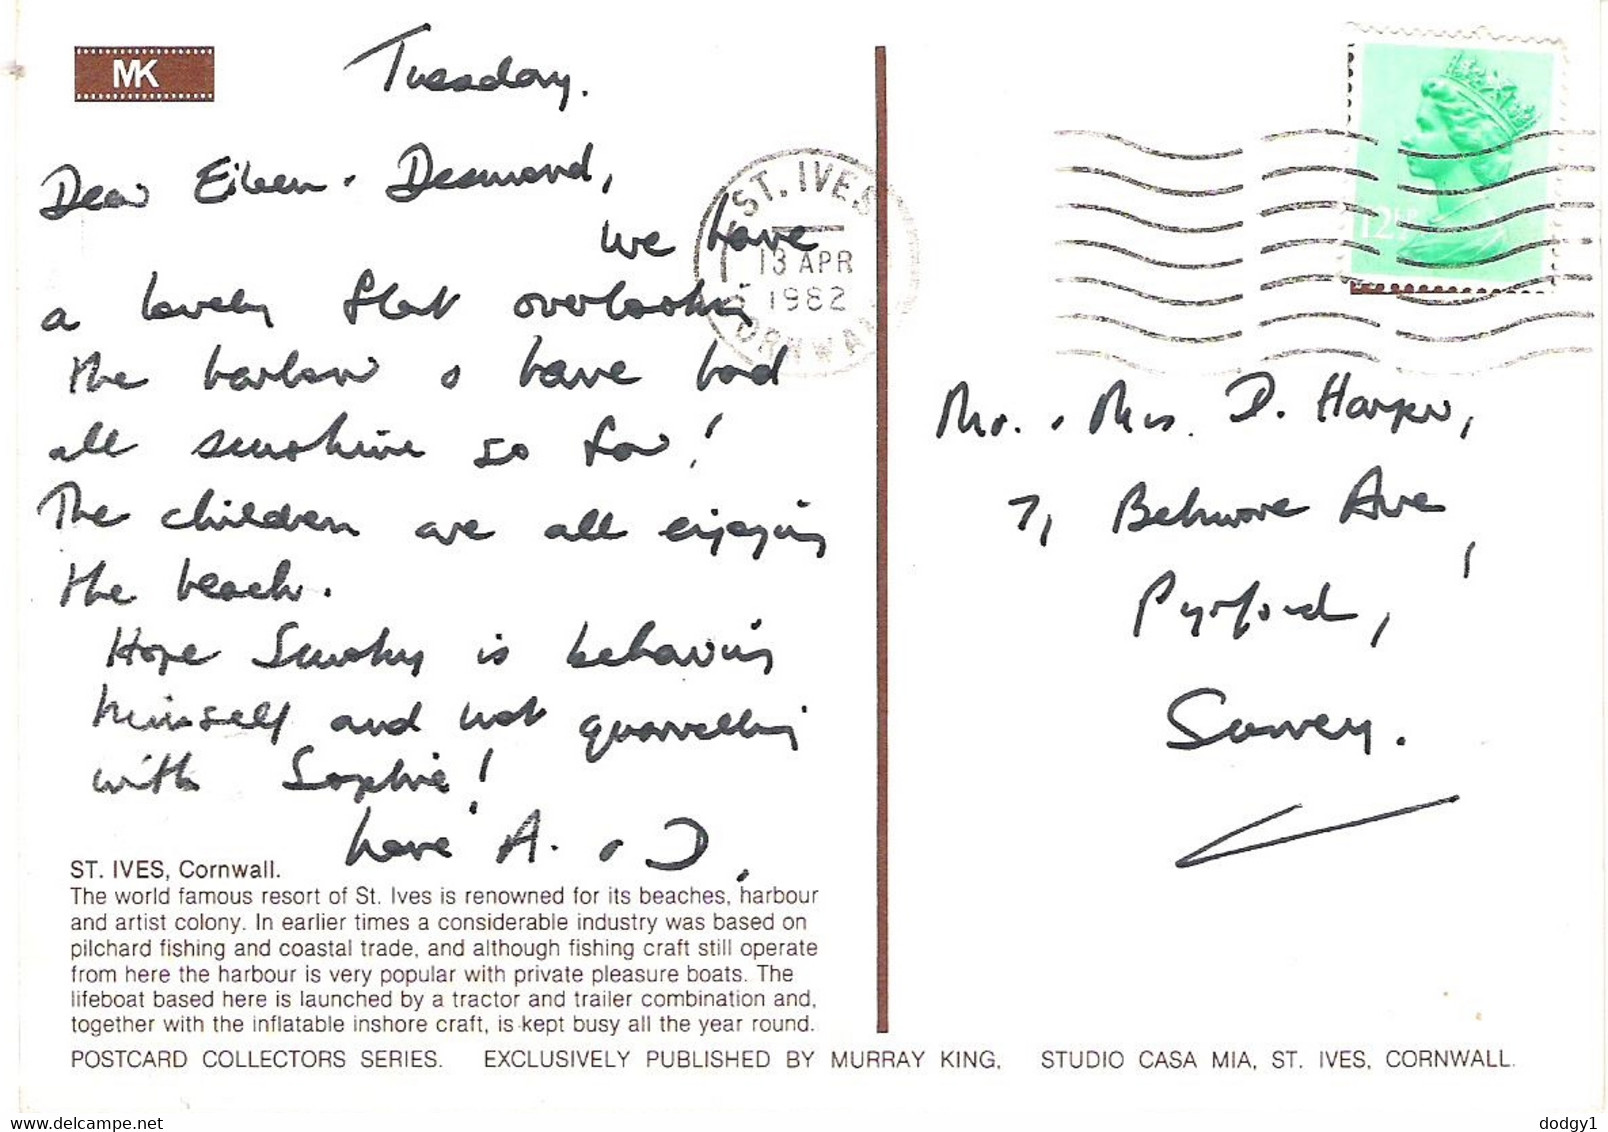 MK
Tuesday.
Dear Eileen & Desmond,
We have
a lovely flat overlooking
the harbour & have had
all sunshine so far!
The children are all enjoying
the beach.
Hope Smoky is behaving
himself and not quarrelling
with Sophie!
Love A. & D.
ST. IVES, Cornwall.
The world famous resort of St. Ives is renowned for its beaches, harbour
and artist colony. In earlier times a considerable industry was based on
pilchard fishing and coastal trade, and although fishing craft still operate
from here the harbour is very popular with private pleasure boats. The
lifeboat based here is launched by a tractor and trailer combination and,
together with the inflatable inshore craft, is kept busy all the year round.
POSTCARD COLLECTORS SERIES. EXCLUSIVELY PUBLISHED BY MURRAY KING, STUDIO CASA MIA, ST. IVES, CORNWALL.
ST. IVES
13 APR
1982
CORNWALL
12½P
Mr. & Mrs. D. Harper,
7, Ave,
Pyrford,
Surrey.
delcampe.net
dodgy1